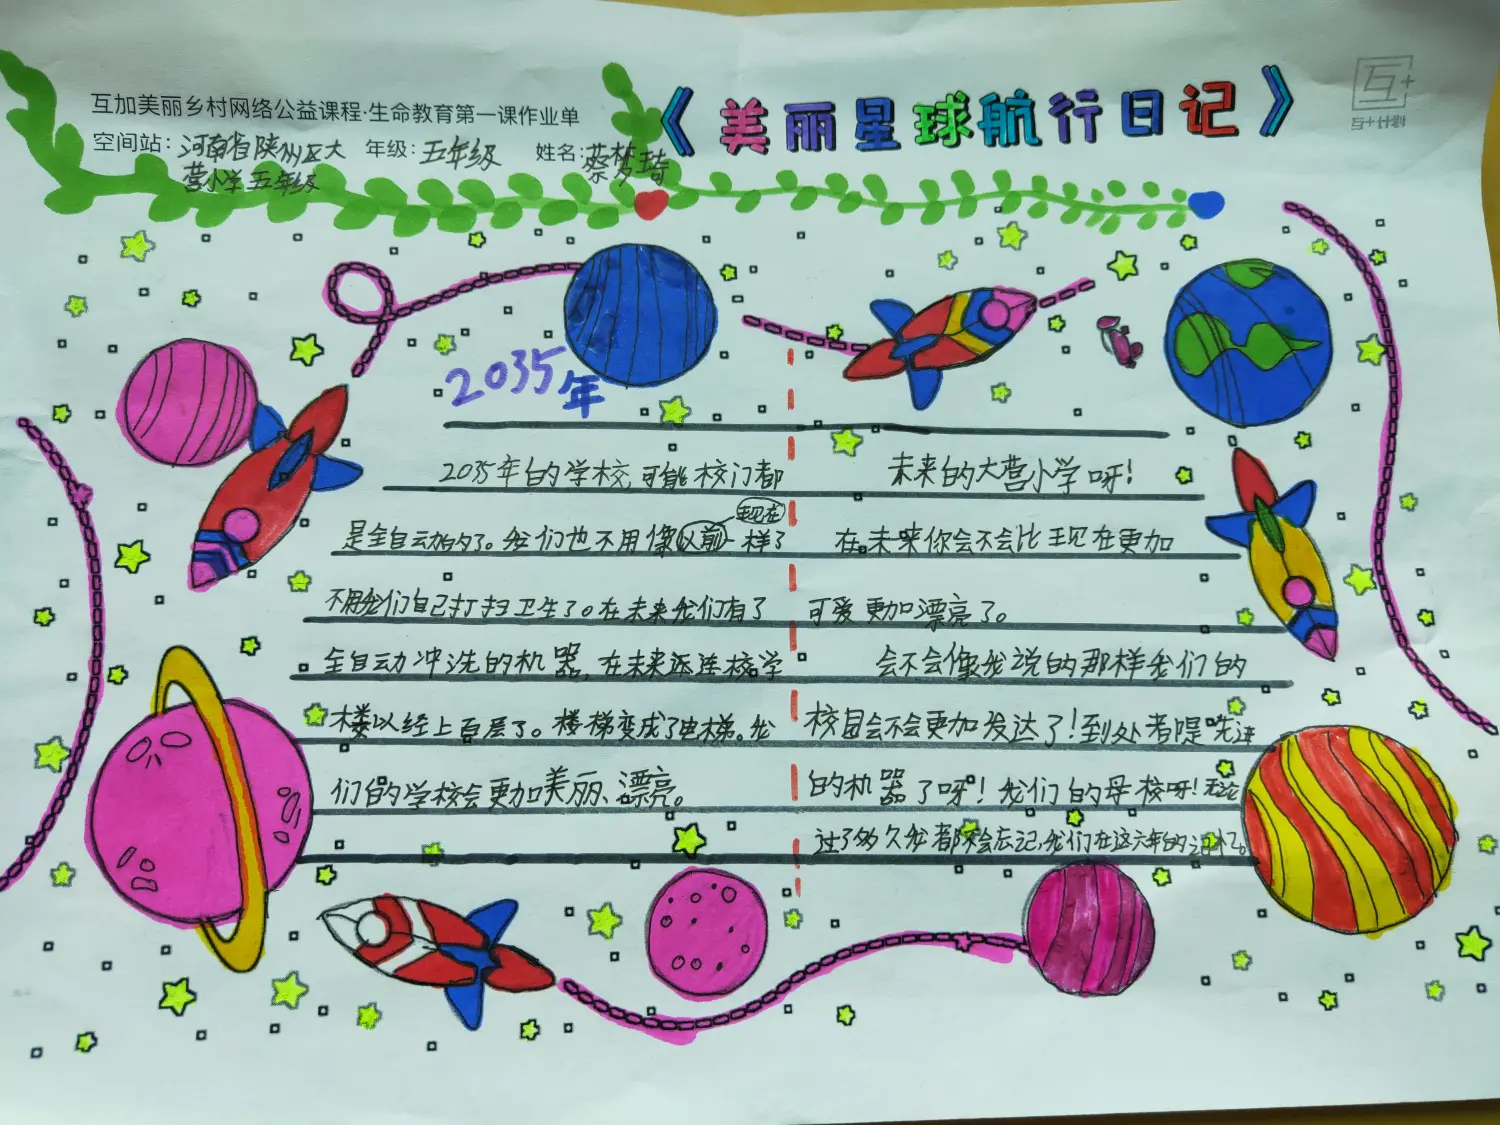 互加美丽乡村网络公益课程·生命教育第一课作业单
空间站：河南省陕州区大营小学五年级 年级：五年级 姓名：蔡梦琦
《美丽星球航行日记》
互+
互+计划
2035年
2035年的学校,可能校门都
是全自动的了。我们也不用像以前一样了
现在
不用我们自己打扫卫生了。在未来我们有了
全自动冲洗的机器,在未来还连校学
楼以经上百层了。楼梯变成了电梯。我
们的学校会更加美丽、漂亮。
未来的大营小学呀!
在未来你会不会比现在更加
可爱更加漂亮了。
会不会像我说的那样我们的
校园会不会更加发达了!到处都是先进
的机器了呀!我们的母校呀!无论
过了多久我都不会忘记,我们在这六年的记忆。